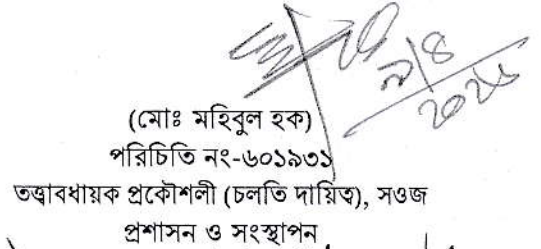 ৯/৪
(মোঃ মহিবুল হক)
পরিচিতি নং-৬০১৯৩১
তত্ত্বাবধায়ক প্রকৌশলী (চলতি দায়িত্ব), সওজ
প্রশাসন ও সংস্থাপন